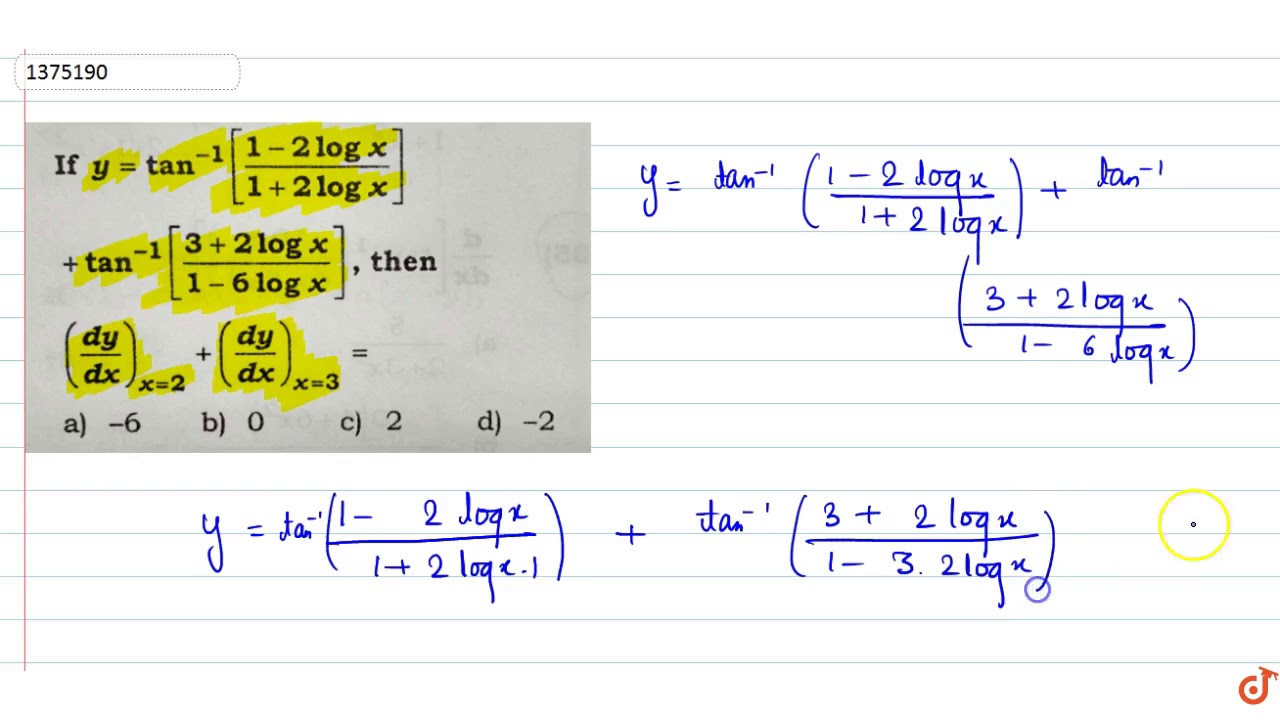 1375190
If y = tan⁻¹ [(1 – 2 log x)/(1 + 2 log x)]
+ tan⁻¹ [(3 + 2 log x)/(1 – 6 log x)], then
(dy/dx)ₓ₌₂ + (dy/dx)ₓ₌₃ =
a) –6 b) 0 c) 2 d) –2
y = tan⁻¹ ((1 – 2 log x)/(1 + 2 log x)) + tan⁻¹
((3 + 2 log x)/(1 – 6 log x))
y = tan⁻¹ ((1 – 2 log x)/(1 + 2 log x . 1)) + tan⁻¹ ((3 + 2 log x)/(1 – 3 . 2 log x))